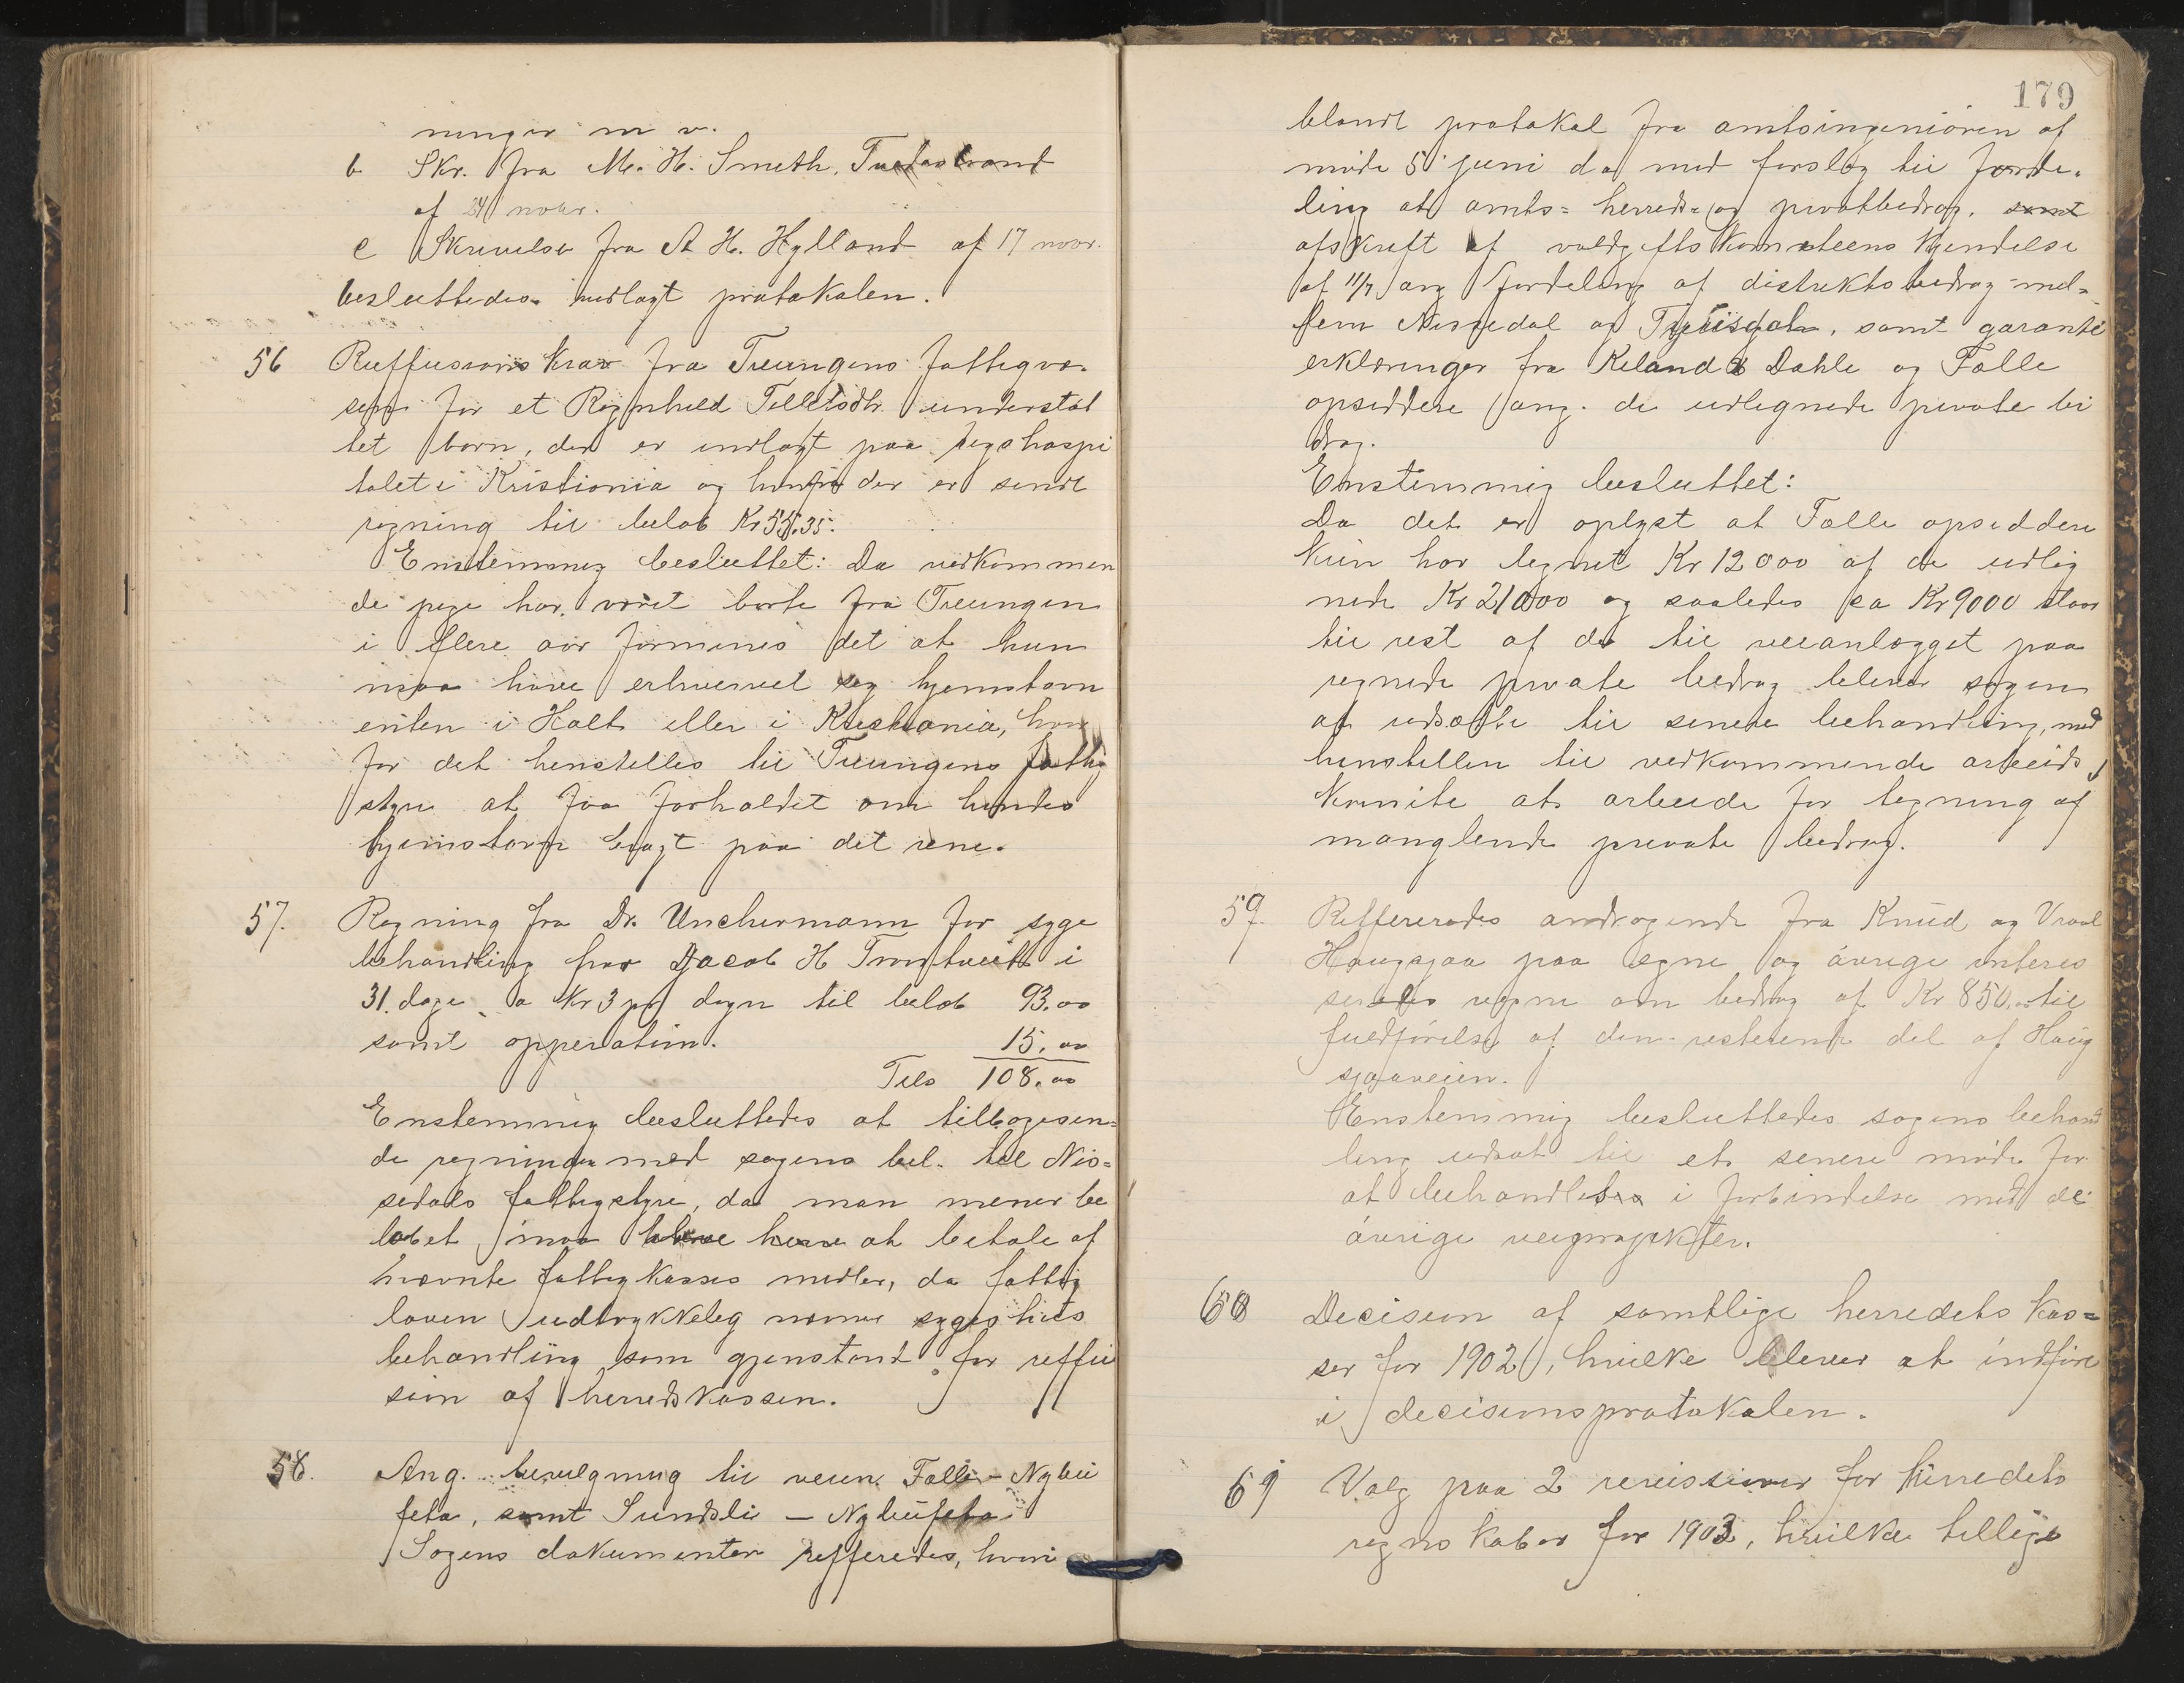 ninger m v.
b Skr. fra M. H. Smith, Tvedestrand
af 24 novbr.
c Skrivelse fra A H. Hylland af 17 novbr.
besluttedes vedlagt protokolen.
56 Reffusions krav fra Treungens fattigvæ-
sen for et Ragnhild Tellefsdtr. understøt
tet barn, der er indlagt paa rigshospi
talet i Kristiania og hvorfra der er sendt
regning til beløb Kr 55.35.
Enstemmig besluttet: Da vedkommen
de pige har været borte fra Treungen
i flere aar formenes det at hun
maa have erhvervet sig hjemstavn
enten i Holt eller i Kristiania, hvor
for det henstilles til Treungens fattig
styre at faa forholdet om hendes
hjemstavn bragt paa det rene.
57. Regning fra Dr. Unchermann for syge
behandling for Jacob H Tromtveit i
31. dage a Kr 3 pr døgn til beløb 93.00
samt opperation. 15.00
Tils 108.00
Enstemmig besluttedes at tilbagesen-
de regningen med sagens bil. til Nis-
sedals fattigstyre, da man mener be
løbet maa blive at betale af
nævnte fattigkasses midler, da fattig
loven udtrykkelig nævner sygeshus
behandling som gjenstand for reffu
sion af herredskassen.
58. Ang. bevilgning til veien Følli - Nybu
feta, samt Sundsli - Nybufeta
Sagens dokumenter reffereredes, hvori
179
blandt protokol fra amtsingeniøren af
møde 5 juni da med forslag til forde-
ling at amts- herreds- og privatbidrag, samt
afskrift af voldgiftskomiteens kjendelse
af 11/7 ang fordeling af distriktsbidrag mel-
lem Nissedal og Tyrisdal, samt garanti
erklæringer fra Reland & Dahle og Følle
opsiddere ang. de udlignede private bi
drag.
Enstimmig besluttet:
Da det er oplyst at Følle opsiddere
kun har tegnet Kr 12000 af de udlig
nede Kr 21000 og saaledes ca Kr 9000 staar
til rest af de til veianlægget paa
regnede private bidrag bliver sagen
at udsætte til senere behandling, med
henstillen til vedkommende arbeids
komite at arbeide for tegning af
manglende private bidrag.
59. Reffereredes andragende fra Knud og Vraal
Haugsjaa paa egne og øvrige interes
seredes vegne om bidrag af Kr 850.00 til
fuldførelse af den resterende del af Haug
sjaaveien.
Enstemmig besluttedes sagens behand
ling udsat til et senere møde for
at behandles i forbindelse med de
øvrige veiprojekter.
60 Decision af samtlige herredets kas-
ser for 1902, hvilke bliver at indføre
i decisionsprotokolen.
61 Valg paa 2 revisorer for herredets
regnskaber for 1903, hvilke tillige